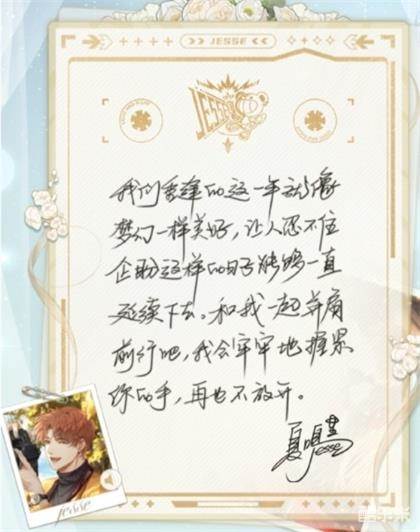 JESSE
JESSE
我们重逢的这一年就像
梦幻一样美好，让人忍不住
企盼这样的日子能够一直
延续下去。和我一起并肩
前行吧，我会牢牢地握紧
你的手，再也不放开。
夏鸣星
Jesse
Jesse